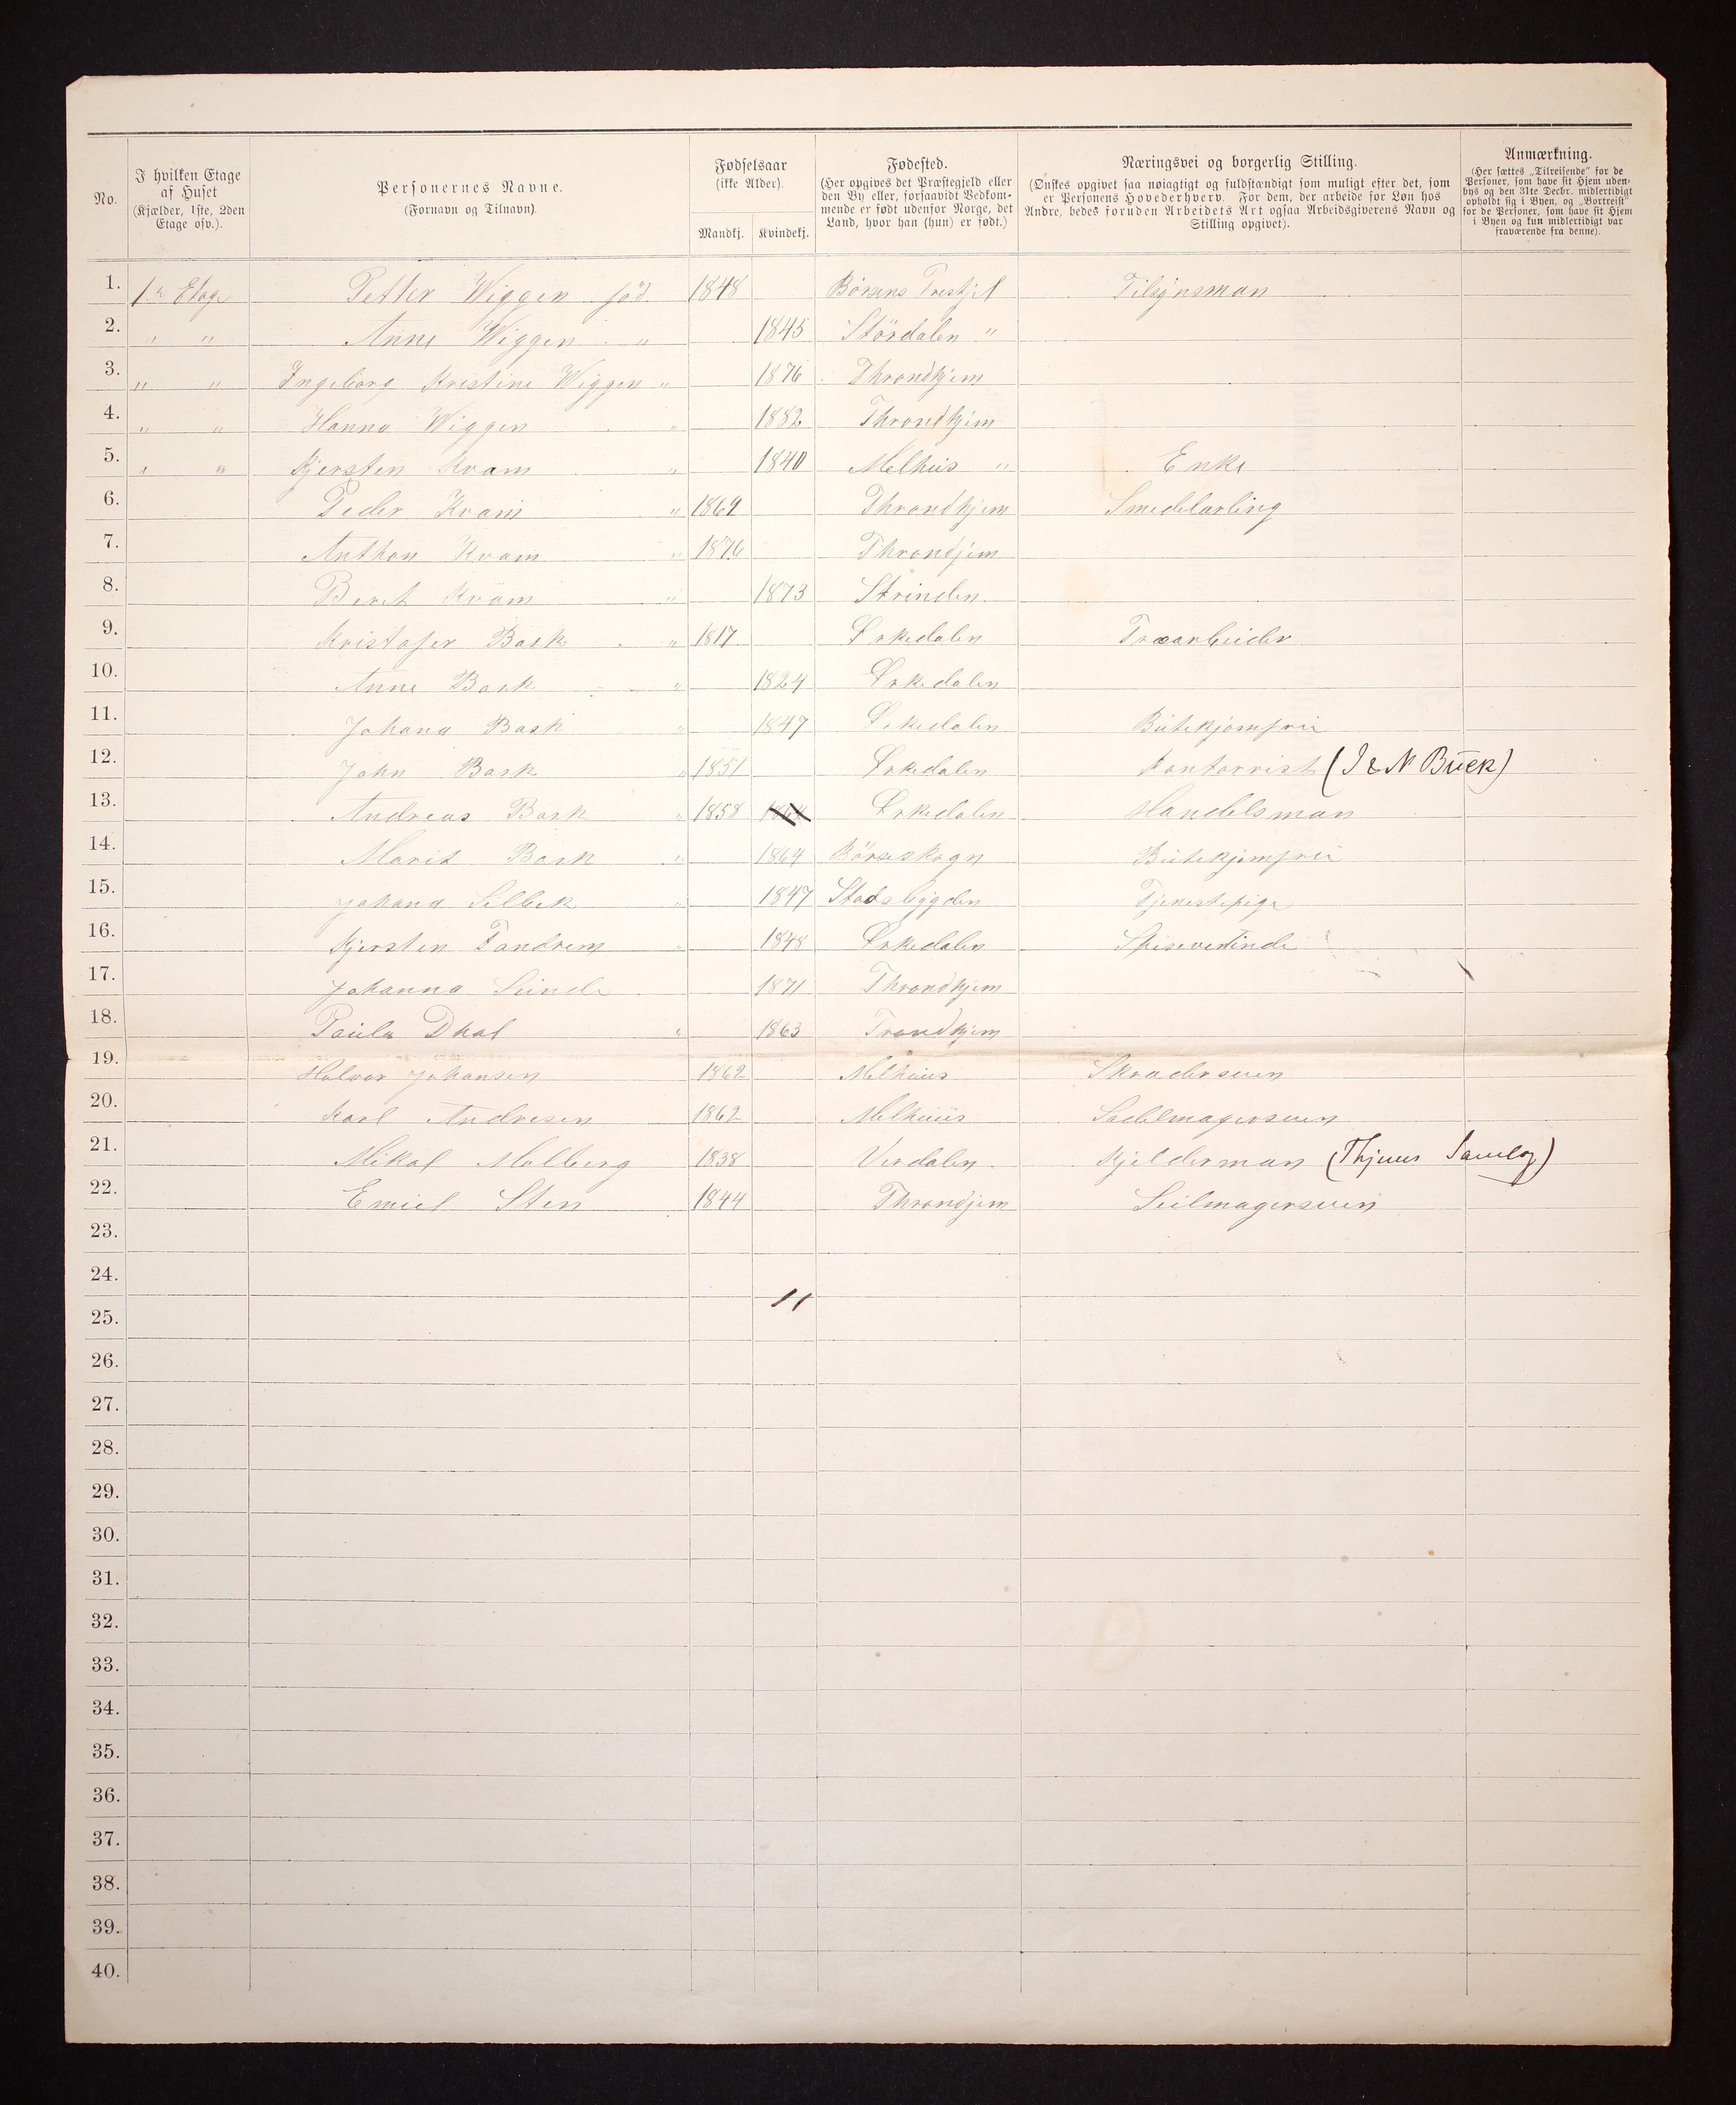 No.
I hvilken Etage af Huset (Kjælder, 1ste, 2den Etage osv.).
Personernes Navne. (Fornavn og Tilnavn).
Fødselsaar (ikke Alder).
Mandkj. Kvindekj.
Fødested. (Her opgives det Præstegjeld eller den By eller, forsaavidt Vedkommende er født udenfor Norge, det Land, hvor han (hun) er født.)
Næringsvei og borgerlig Stilling. (Ønskes opgivet saa nøiagtigt og fuldstændigt som muligt efter det, som er Personens Hovederhverv. For dem, der arbeide for Løn hos Andre, bedes foruden Arbeidets Art ogsaa Arbeidsgiverens Navn og Stilling opgivet).
Anmærkning. (Her sættes „Tilreisende“ for de Personer, som have sit Hjem udenbys og den 31te Decbr. midlertidigt opholdt sig i Byen, og „Bortreist“ for de Personer, som have sit Hjem i Byen og kun midlertidigt var fraværende fra denne).
1. 1ste Etage Petter Wiggen föd 1848 Börsens Prestjel Tilsynsman
2. " " Anne Wiggen " 1845 Stördalen "
3. " " Ingeborg Kristine Wiggen " 1876 Throndhjem
4. " " Hanna Wiggen " 1882 Throndhjem
5. " " Kjersten Kvam " 1840 Melhus " Enke
6. Peder Kvam " 1869 Throndhjem Smedlærling
7. Anthon Kvam " 1876 Throndjem
8. Beret Kvam " 1873 Strinden
9. Kristofer Bask " 1817 Ørkedalen Træarbeider
10. Anne Bask " 1824 Ørkedalen
11. Johana Bask " 1847 Ørkedalen Butekjomfru
12. John Bask " 1851 Ørkedalen Kontorrist (I & N Buck)
13. Andreas Bask " 1858 1864 Ørkedalen Handelsman
14. Marit Bask " 1864 Börseskogn Butekjomfru
15. Johana Selbek " 1847 Stadsbygden Tjenestepige
16. Kjersten Tandrem " 1848 Ørkedalen Spisevertinde
17. Johanna Sunde 1871 Throndhjem
18. Paula Dhal " 1863 Trondhjem
19. Halvor Johansen 1862 Melhuus Skradersven
20. Karl Andresen 1862 Melhuus Sadelmagersven
21. Mikal Molberg 1838 Verdalen Kjelderman (Thjems Samlag)
22. Emiel Sten 1844 Throndjem Seilmagersven
23.
24.
11
25.
26.
27.
28.
29.
30.
31.
32.
33.
34.
35.
36.
37.
38.
39.
40.